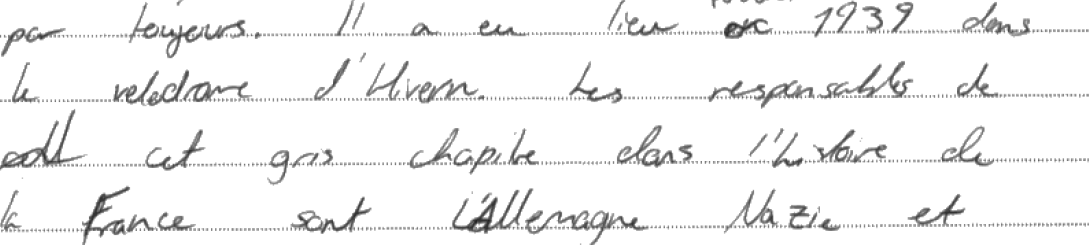 par toujours. Il a eu lieu 1939 dans
le veledrome d'Hivern. Les responsables de
cet gris chapite dans l'histoire de
la France sont l'Allemagne Nazie et